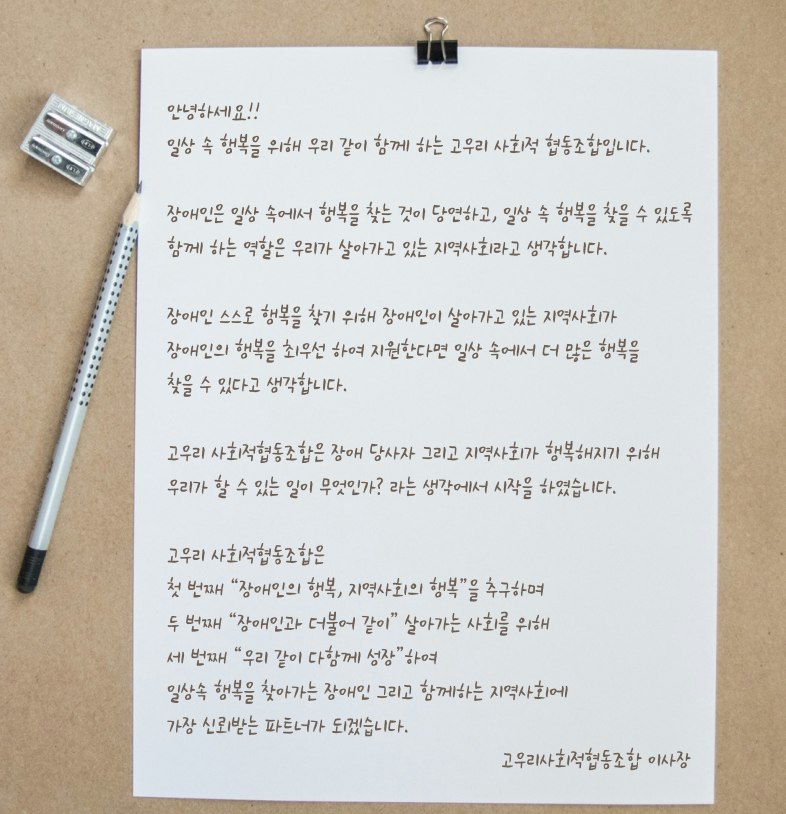 안녕하세요!!
일상 속 행복을 위해 우리 같이 함께 하는 고우리 사회적 협동조합입니다.
장애인은 일상 속에서 행복을 찾는 것이 당연하고, 일상 속 행복을 찾을 수 있도록
함께 하는 역할은 우리가 살아가고 있는 지역사회라고 생각합니다.
장애인 스스로 행복을 찾기 위해 장애인이 살아가고 있는 지역사회가
장애인의 행복을 최우선 하여 지원한다면 일상 속에서 더 많은 행복을
찾을 수 있다고 생각합니다.
고우리 사회적협동조합은 장애 당사자 그리고 지역사회가 행복해지기 위해
우리가 할 수 있는 일이 무엇인가? 라는 생각에서 시작을 하였습니다.
고우리 사회적협동조합은
첫 번째 “장애인의 행복, 지역사회의 행복”을 추구하며
두 번째 “장애인과 더불어 같이” 살아가는 사회를 위해
세 번째 “우리 같이 다함께 성장”하여
일상속 행복을 찾아가는 장애인 그리고 함께하는 지역사회에
가장 신뢰받는 파트너가 되겠습니다.
고우리사회적협동조합 이사장